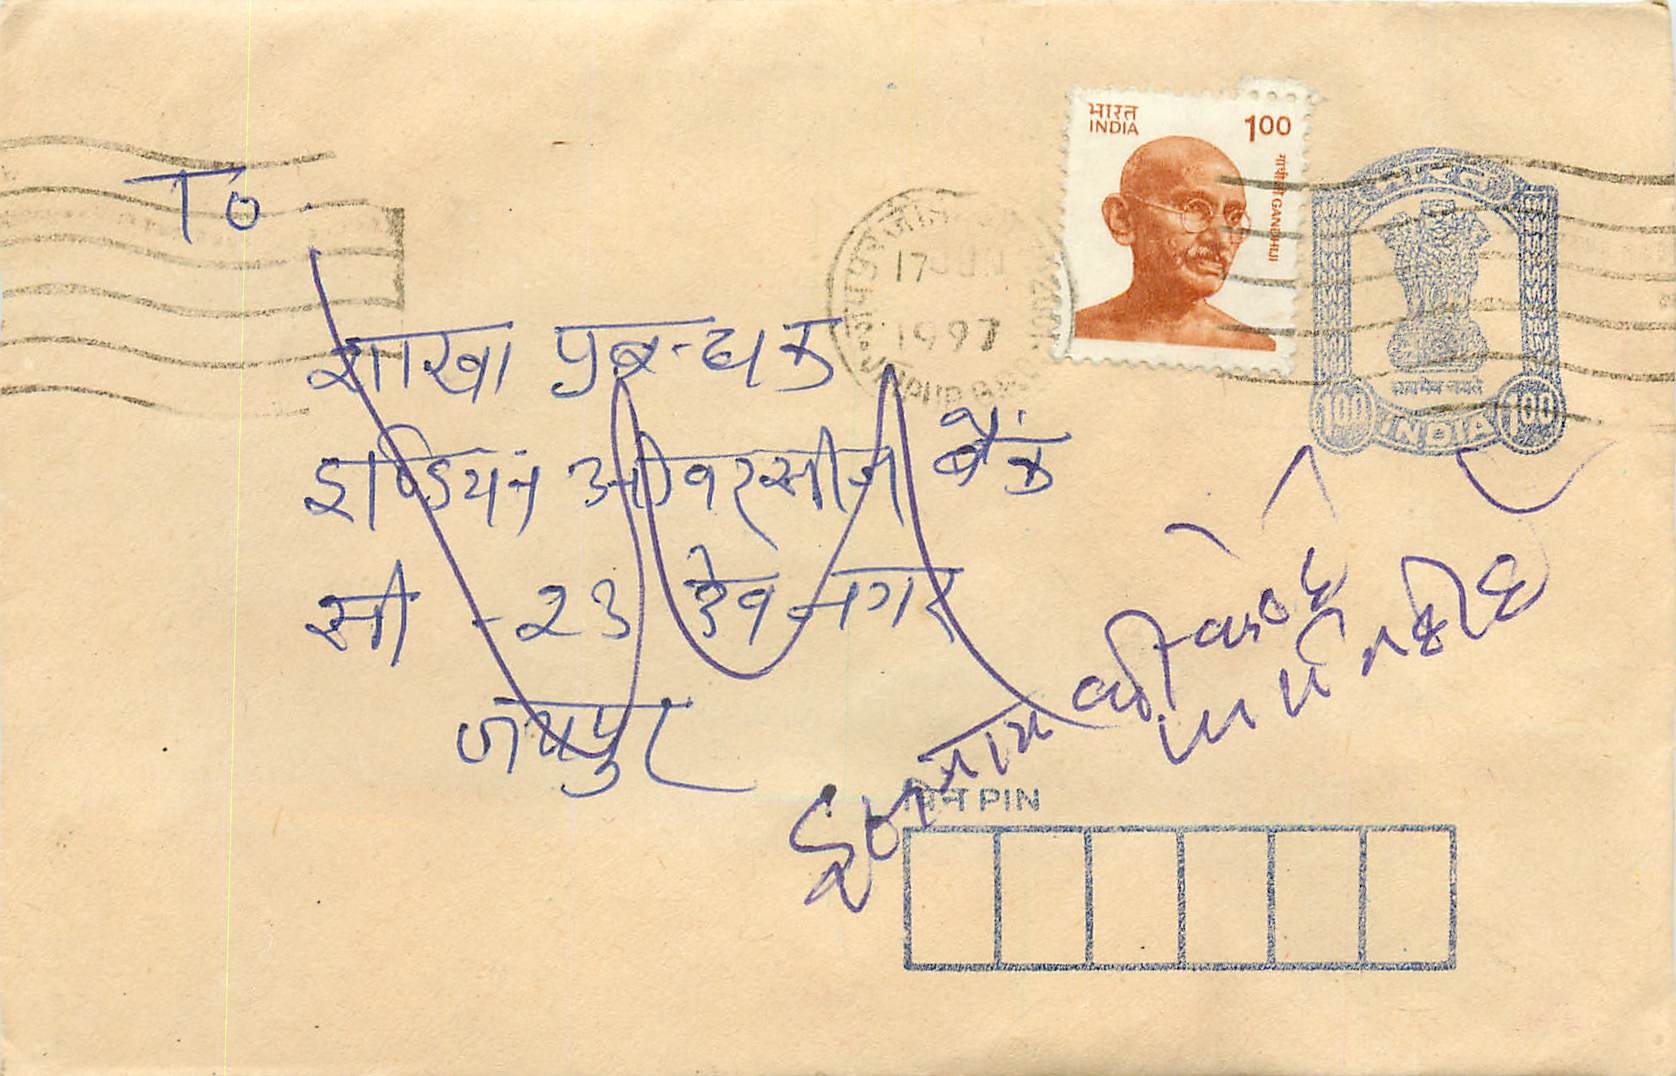 To
भारत
INDIA
100
गांधीजी GANDHIJI
भारत
सत्यमेव जयते
100 INDIA 100
17 JUN
1997
शाखा प्रबन्धक
इण्डियन ओवरसीज बैंक
सी - 23 देव नगर
जयपुर
इस नाम की कोई
नहीं है
पिन PIN